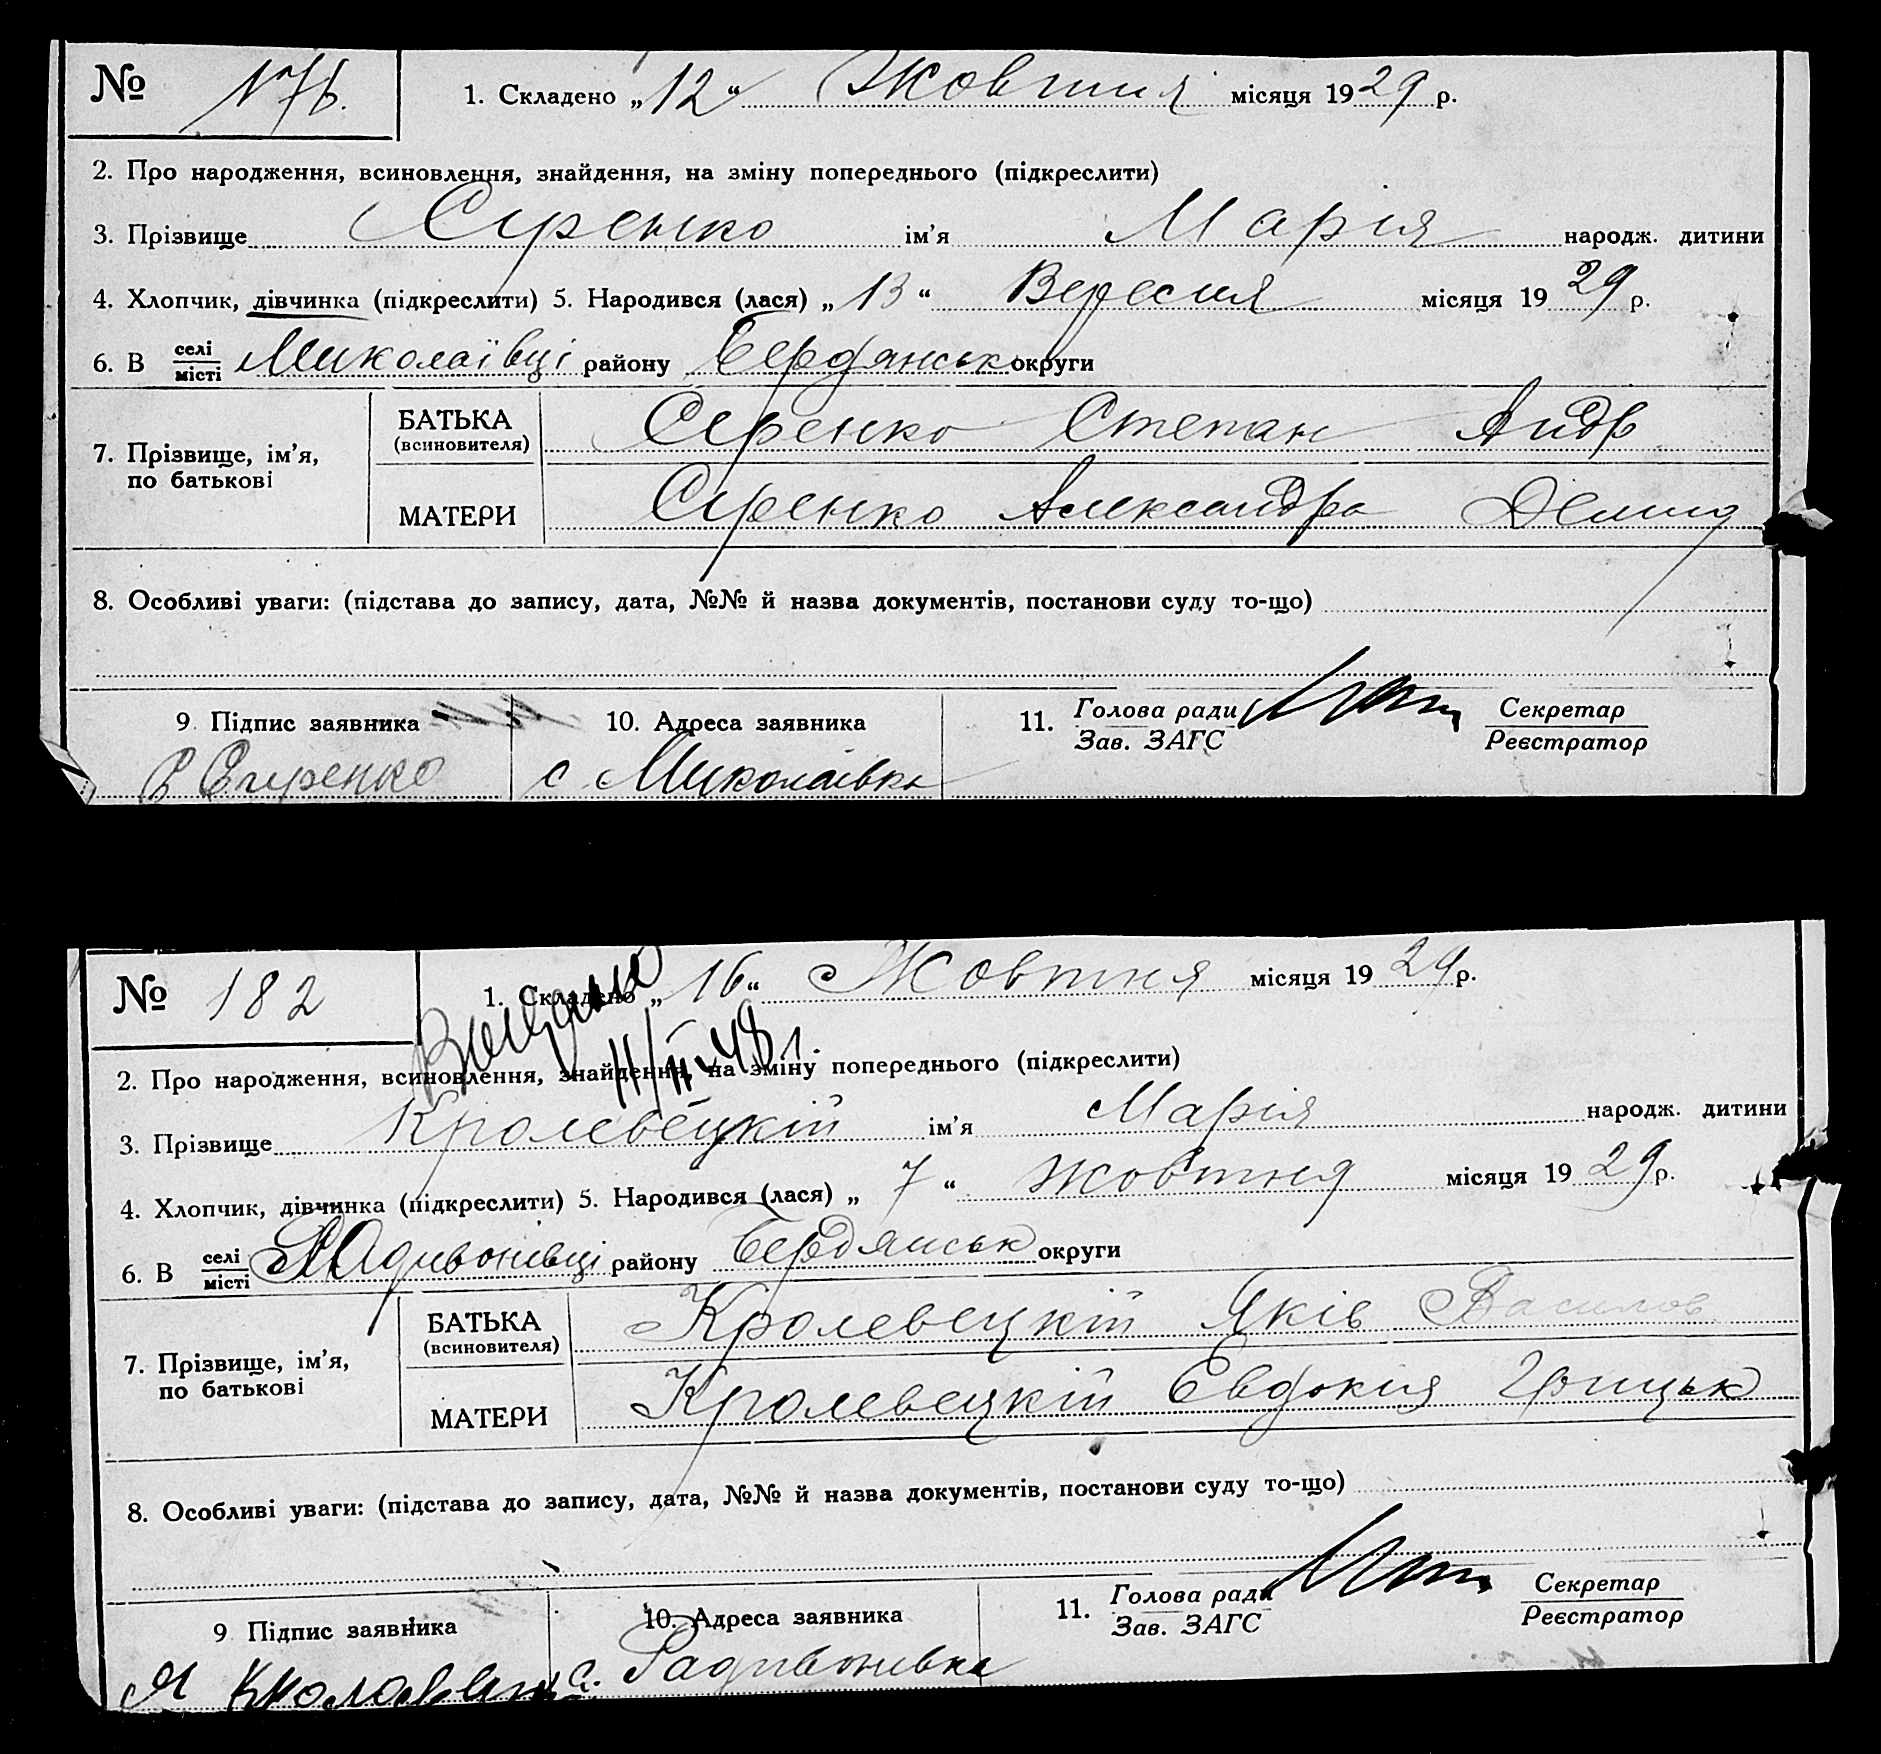 № 176.
1. Складено „12“ Жовтня місяця 1929 р.
2. Про народження, всиновлення, знайдення, на зміну попереднього (підкреслити)
3. Прізвище Сіренко ім’я Марія народж. дитини
4. Хлопчик, дівчинка (підкреслити) 5. Народився (лася) „13“ Вересня місяця 1929 р.
6. В селі місті Миколаївці району Бердянськ округи
7. Прізвище, ім’я, по батькові
БАТЬКА (всиновителя) Сіренко Степан Андр
МАТЕРИ Сіренко Александра Демид
8. Особливі уваги: (підстава до запису, дата, №№ й назва документів, постанови суду то-що)
9 Підпис заявника 10. Адреса заявника 11. Голова ради Зав. ЗАГС Секретар Реєстратор
с. Миколаївка
№ 182
1. Складено „16“ Жовтня місяця 1929 р.
11/II-48 г.
2. Про народження, всиновлення, знайдення, на зміну попереднього (підкреслити)
3. Прізвище Кролевецкій ім’я Марія народж. дитини
4. Хлопчик, дівчинка (підкреслити) 5. Народився (лася) „7“ жовтня місяця 1929 р.
6. В селі місті Радивонівці району Бердянськ округи
7. Прізвище, ім’я, по батькові
БАТЬКА (всиновителя) Кролевецкій Яків Василов
МАТЕРИ Кролевецкій Евдокия Грицьк
8. Особливі уваги: (підстава до запису, дата, №№ й назва документів, постанови суду то-що)
9 Підпис заявника 10. Адреса заявника 11. Голова ради Зав. ЗАГС Секретар Реєстратор
с. Радивонивка